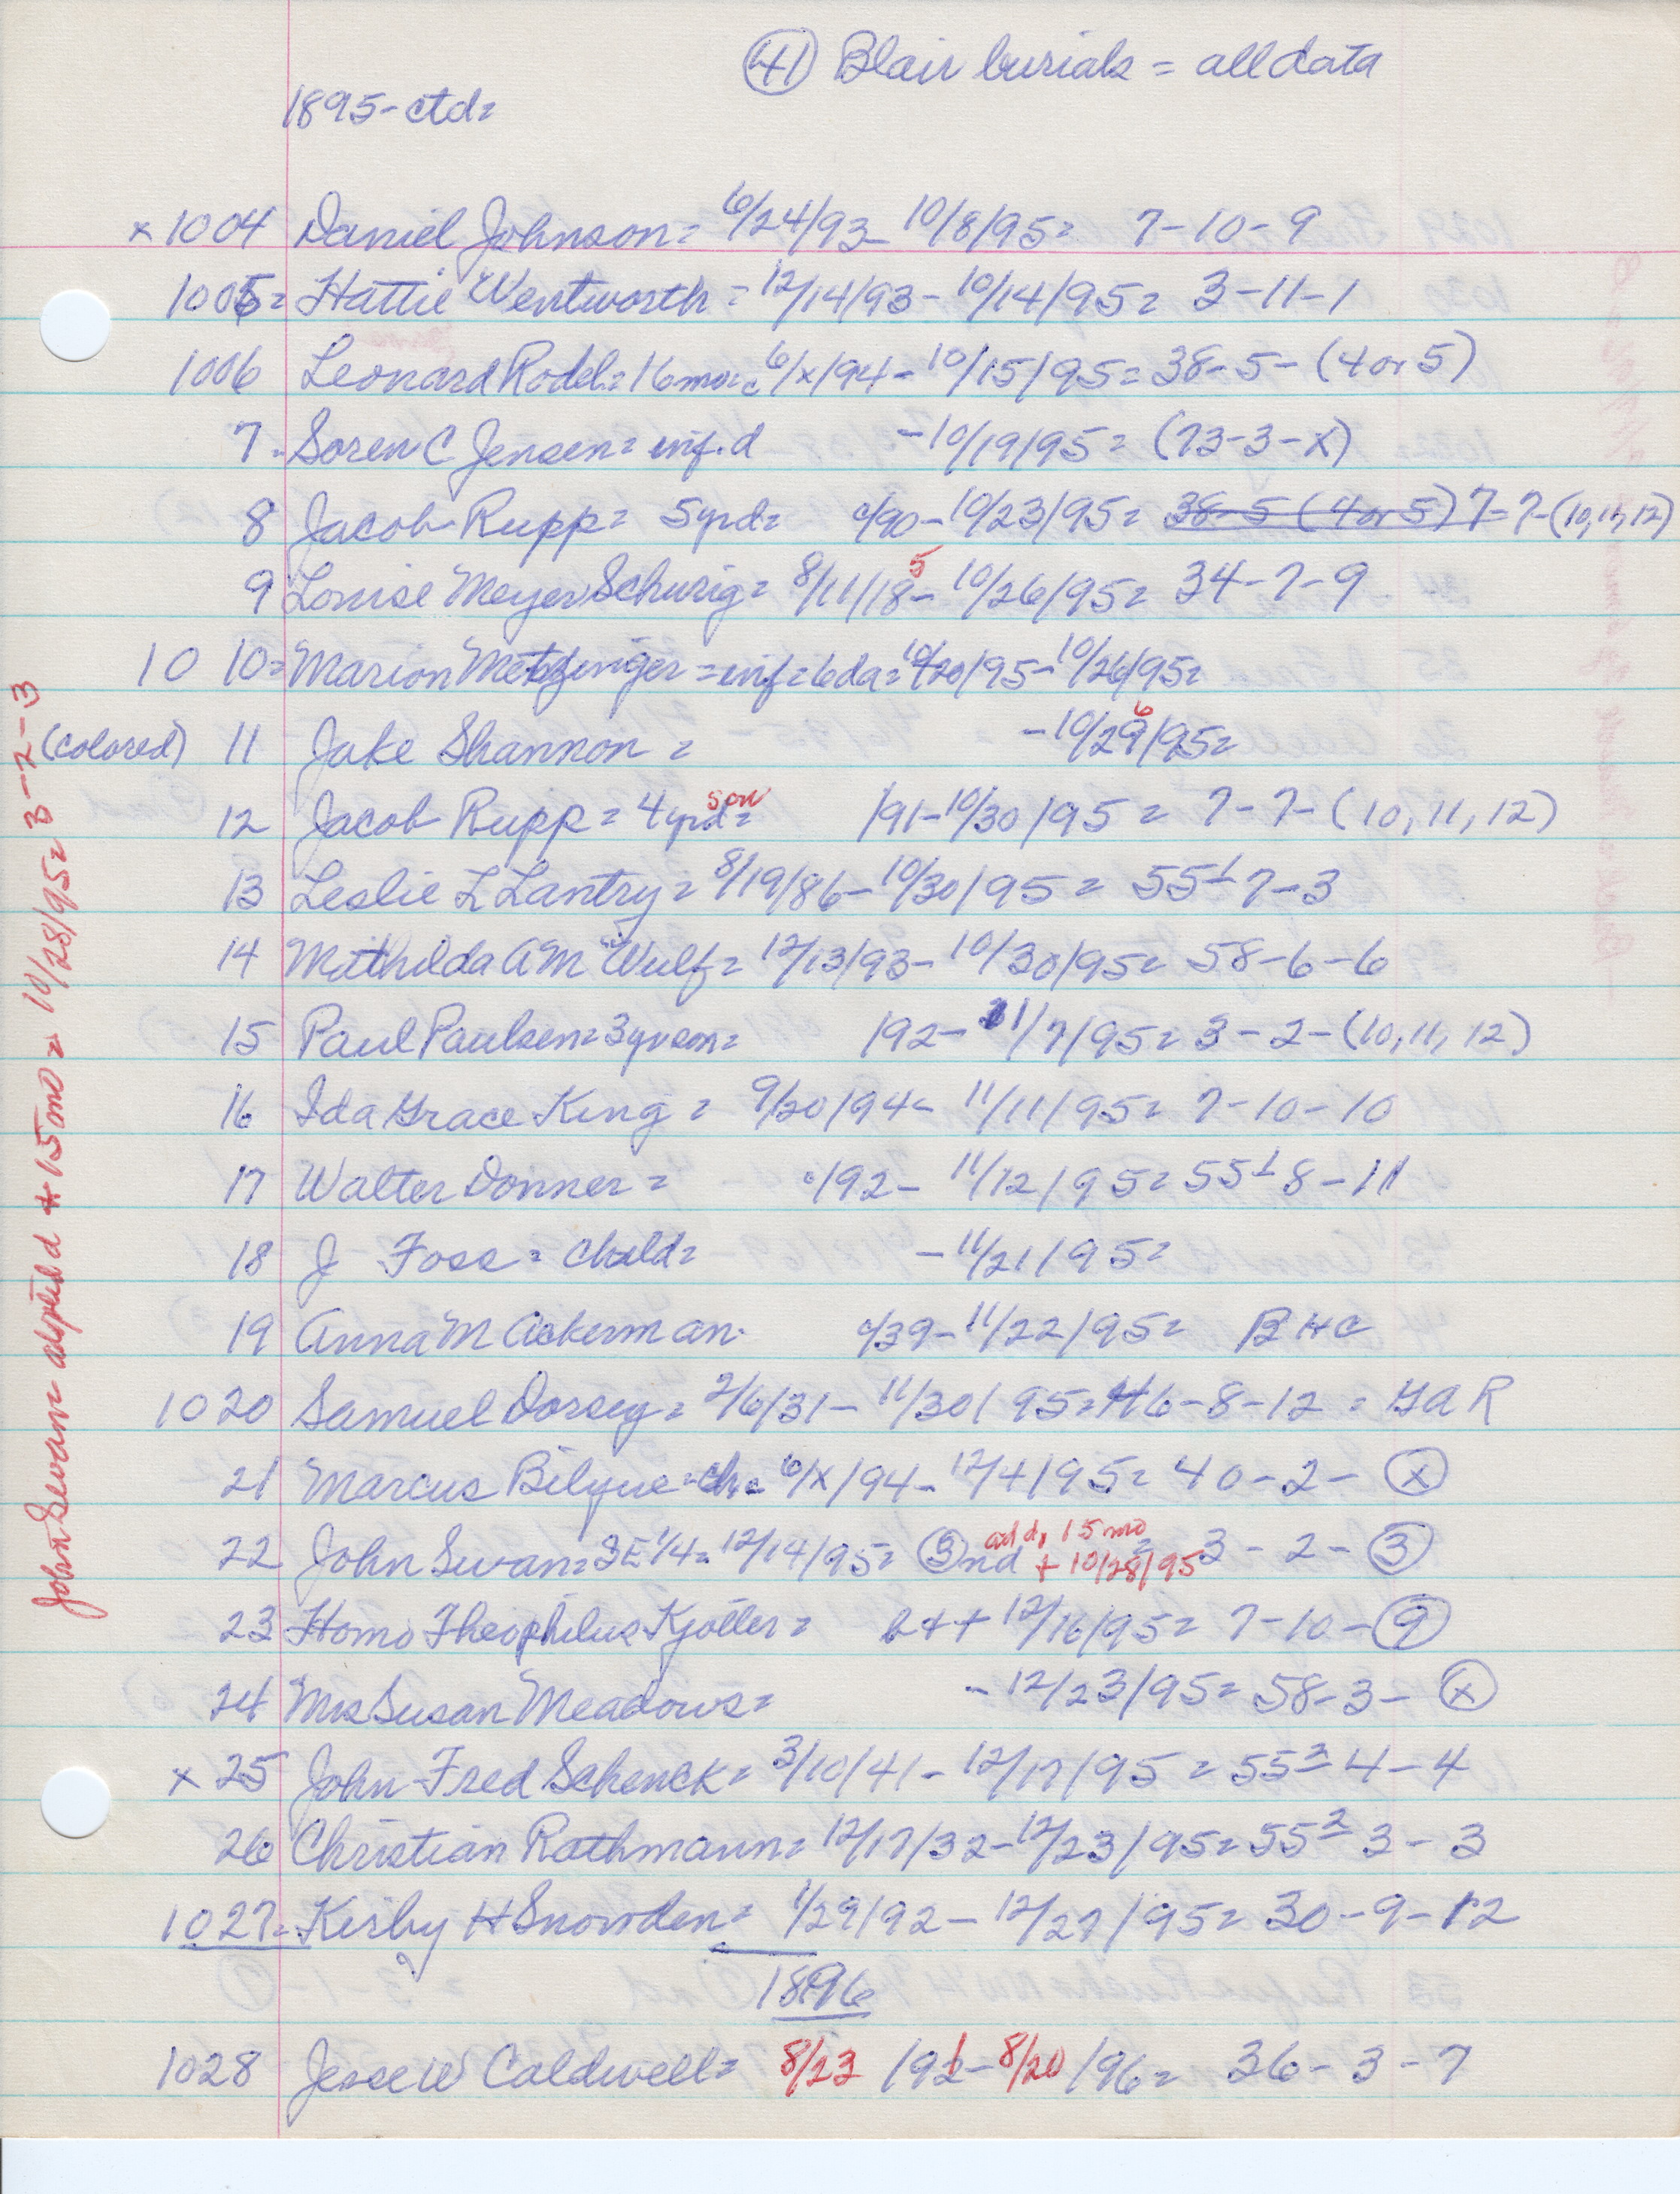 (41) Blair burials = all data
1895 - ctd =
x 1004 Daniel Johnson = 6/24/93 - 10/8/95 = 7-10-9
1005 = Hattie Wentworth = 12/14/93 - 10/14/95 = 3-11-1
1006 Leonard Rodel = 16mo = c 6/x/94 - 10/15/95 = 38-5-(4 or 5)
7 - Soren C Jensen = inf. d - 10/19/95 = (73-3-x)
8 Jacob Rupp = 5yrd = c/90 - 10/23/95 = 38-5 (4 or 5) 7-7-(10,11,12)
9 Louise Meyer Schurig = 8/11/18 5 - 10/26/95 = 34-7-9
10 10 = Marion Metzinger = inf = 6da = 10/20/95 - 10/26/95 =
(colored) 11 Jake Shannon = - 10/29 6/95 =
12 Jacob Rupp = 4yrd = son /91 - 10/30/95 = 7-7-(10,11,12)
13 Leslie L Lantry = 8/19/86 - 10/30/95 = 55 1 7-3
14 Mathilda A M Wulf = 12/13/93 - 10/30/95 = 58-6-6
15 Paul Paulsen = 3yr son = /92 - 11/7/95 = 3-2-(10,11,12)
16 Ida Grace King = 9/20/94 - 11/11/95 = 7-10-10
17 Walter Donner = c/92 - 11/12/95 = 55 1 8-11
18 J Foss = child = - 11/21/95 =
19 Anna M Ackerman - c/39 - 11/22/95 = B H C
1020 Samuel Dorsey = 2/6/31 - 11/30/95 = 46-8-12 = GAR
21 Marcus Bilyue = ch = c 6/x/94 - 12/4/95 = 40-2-(x)
22 John Swan = SE 1/4 = 12/14/95 = (3)nd add, 15 mo + 10/28/95 = 3-2-(3)
23 Homo Theophilus Kjoller = b + + 12/16/95 = 7-10-(9)
24 Mrs Susan Meadows = - 12/23/95 = 58-3-(x)
x 25 John Fred Schenck = 3/10/41 - 12/17/95 = 55 2 4-4
26 Christian Rathmann = 12/17/32 - 12/23/95 = 55 2 3-3
1027 = Kirby H Snowden = 1/29/92 - 12/27/95 = 30-9-12
1896
1028 Jesse W Caldwell = 8/23/91 - 8/20/96 = 36-3-7
John Swan = adpted + 15mo = 10/28/95 = 3-2-3